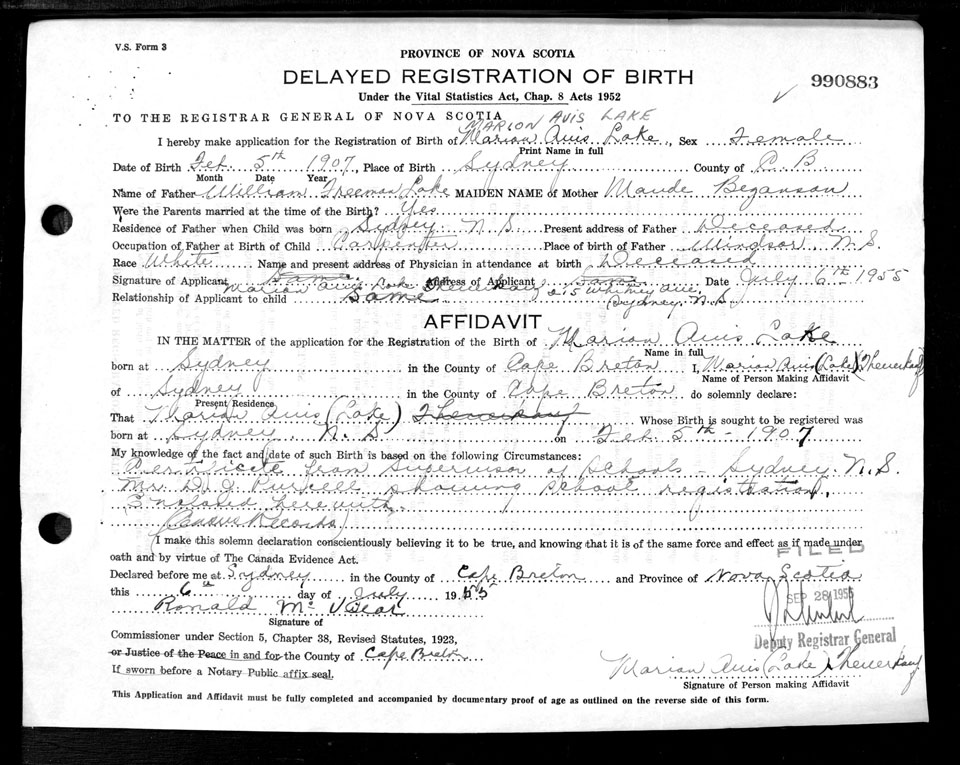 V.S. Form 3
PROVINCE OF NOVA SCOTIA
DELAYED REGISTRATION OF BIRTH
990883
Under the Vital Statistics Act, Chap. 8 Acts 1952
TO THE REGISTRAR GENERAL OF NOVA SCOTIA
MARION AVIS LAKE
I hereby make application for the Registration of Birth of Marian Avis Lake, Sex Female
Print Name in full
Date of Birth Feb. 5th 1907, Place of Birth Sydney County of C. B
Month Date Year
Name of Father William Freeman Lake MAIDEN NAME of Mother Maude Beganson
Were the Parents married at the time of the Birth? Yes
Residence of Father when Child was born Sydney N. S. Present address of Father Deceased
Occupation of Father at Birth of Child Carpenter Place of birth of Father Windsor N. S.
Race White Name and present address of Physician in attendance at birth Deceased
Signature of Applicant Same Address of Applicant Same Date July 6th 1955
Marian Avis Lake Theuerkauf 215 Whitney Ave,
Relationship of Applicant to child Same Sydney. N. S.
AFFIDAVIT
IN THE MATTER of the application for the Registration of the Birth of Marian Avis Lake
Name in full
born at Sydney in the County of Cape Breton I, Marian Avis (Lake) Theuerkauf
Name of Person Making Affidavit
of Sydney in the County of Cape Breton do solemnly declare:
Present Residence
That Marian Avis (Lake) Theuerkauf Whose Birth is sought to be registered was
born at Sydney N. S on Feb 5th - 1907
My knowledge of the fact and date of such Birth is based on the following Circumstances:
Certificate from Supervisor of Schools - Sydney. N. S.
Mr. D. J. Purcell showing school registration.
Enclosed herewith.
(Census Records)
I make this solemn declaration conscientiously believing it to be true, and knowing that it is of the same force and effect as if made under
oath and by virtue of The Canada Evidence Act.
FILED
Declared before me at Sydney in the County of Cape Breton and Province of Nova Scotia
this 6th day of July 1955
SEP 28 1955
Ronald Mc
Signature of
Deputy Registrar General
Commissioner under Section 5, Chapter 38, Revised Statutes, 1923,
or Justice of the Peace in and for the County of Cape Breton
If sworn before a Notary Public affix seal.
Marian Avis (Lake) Theuerkauf
Signature of Person making Affidavit
This Application and Affidavit must be fully completed and accompanied by documentary proof of age as outlined on the reverse side of this form.